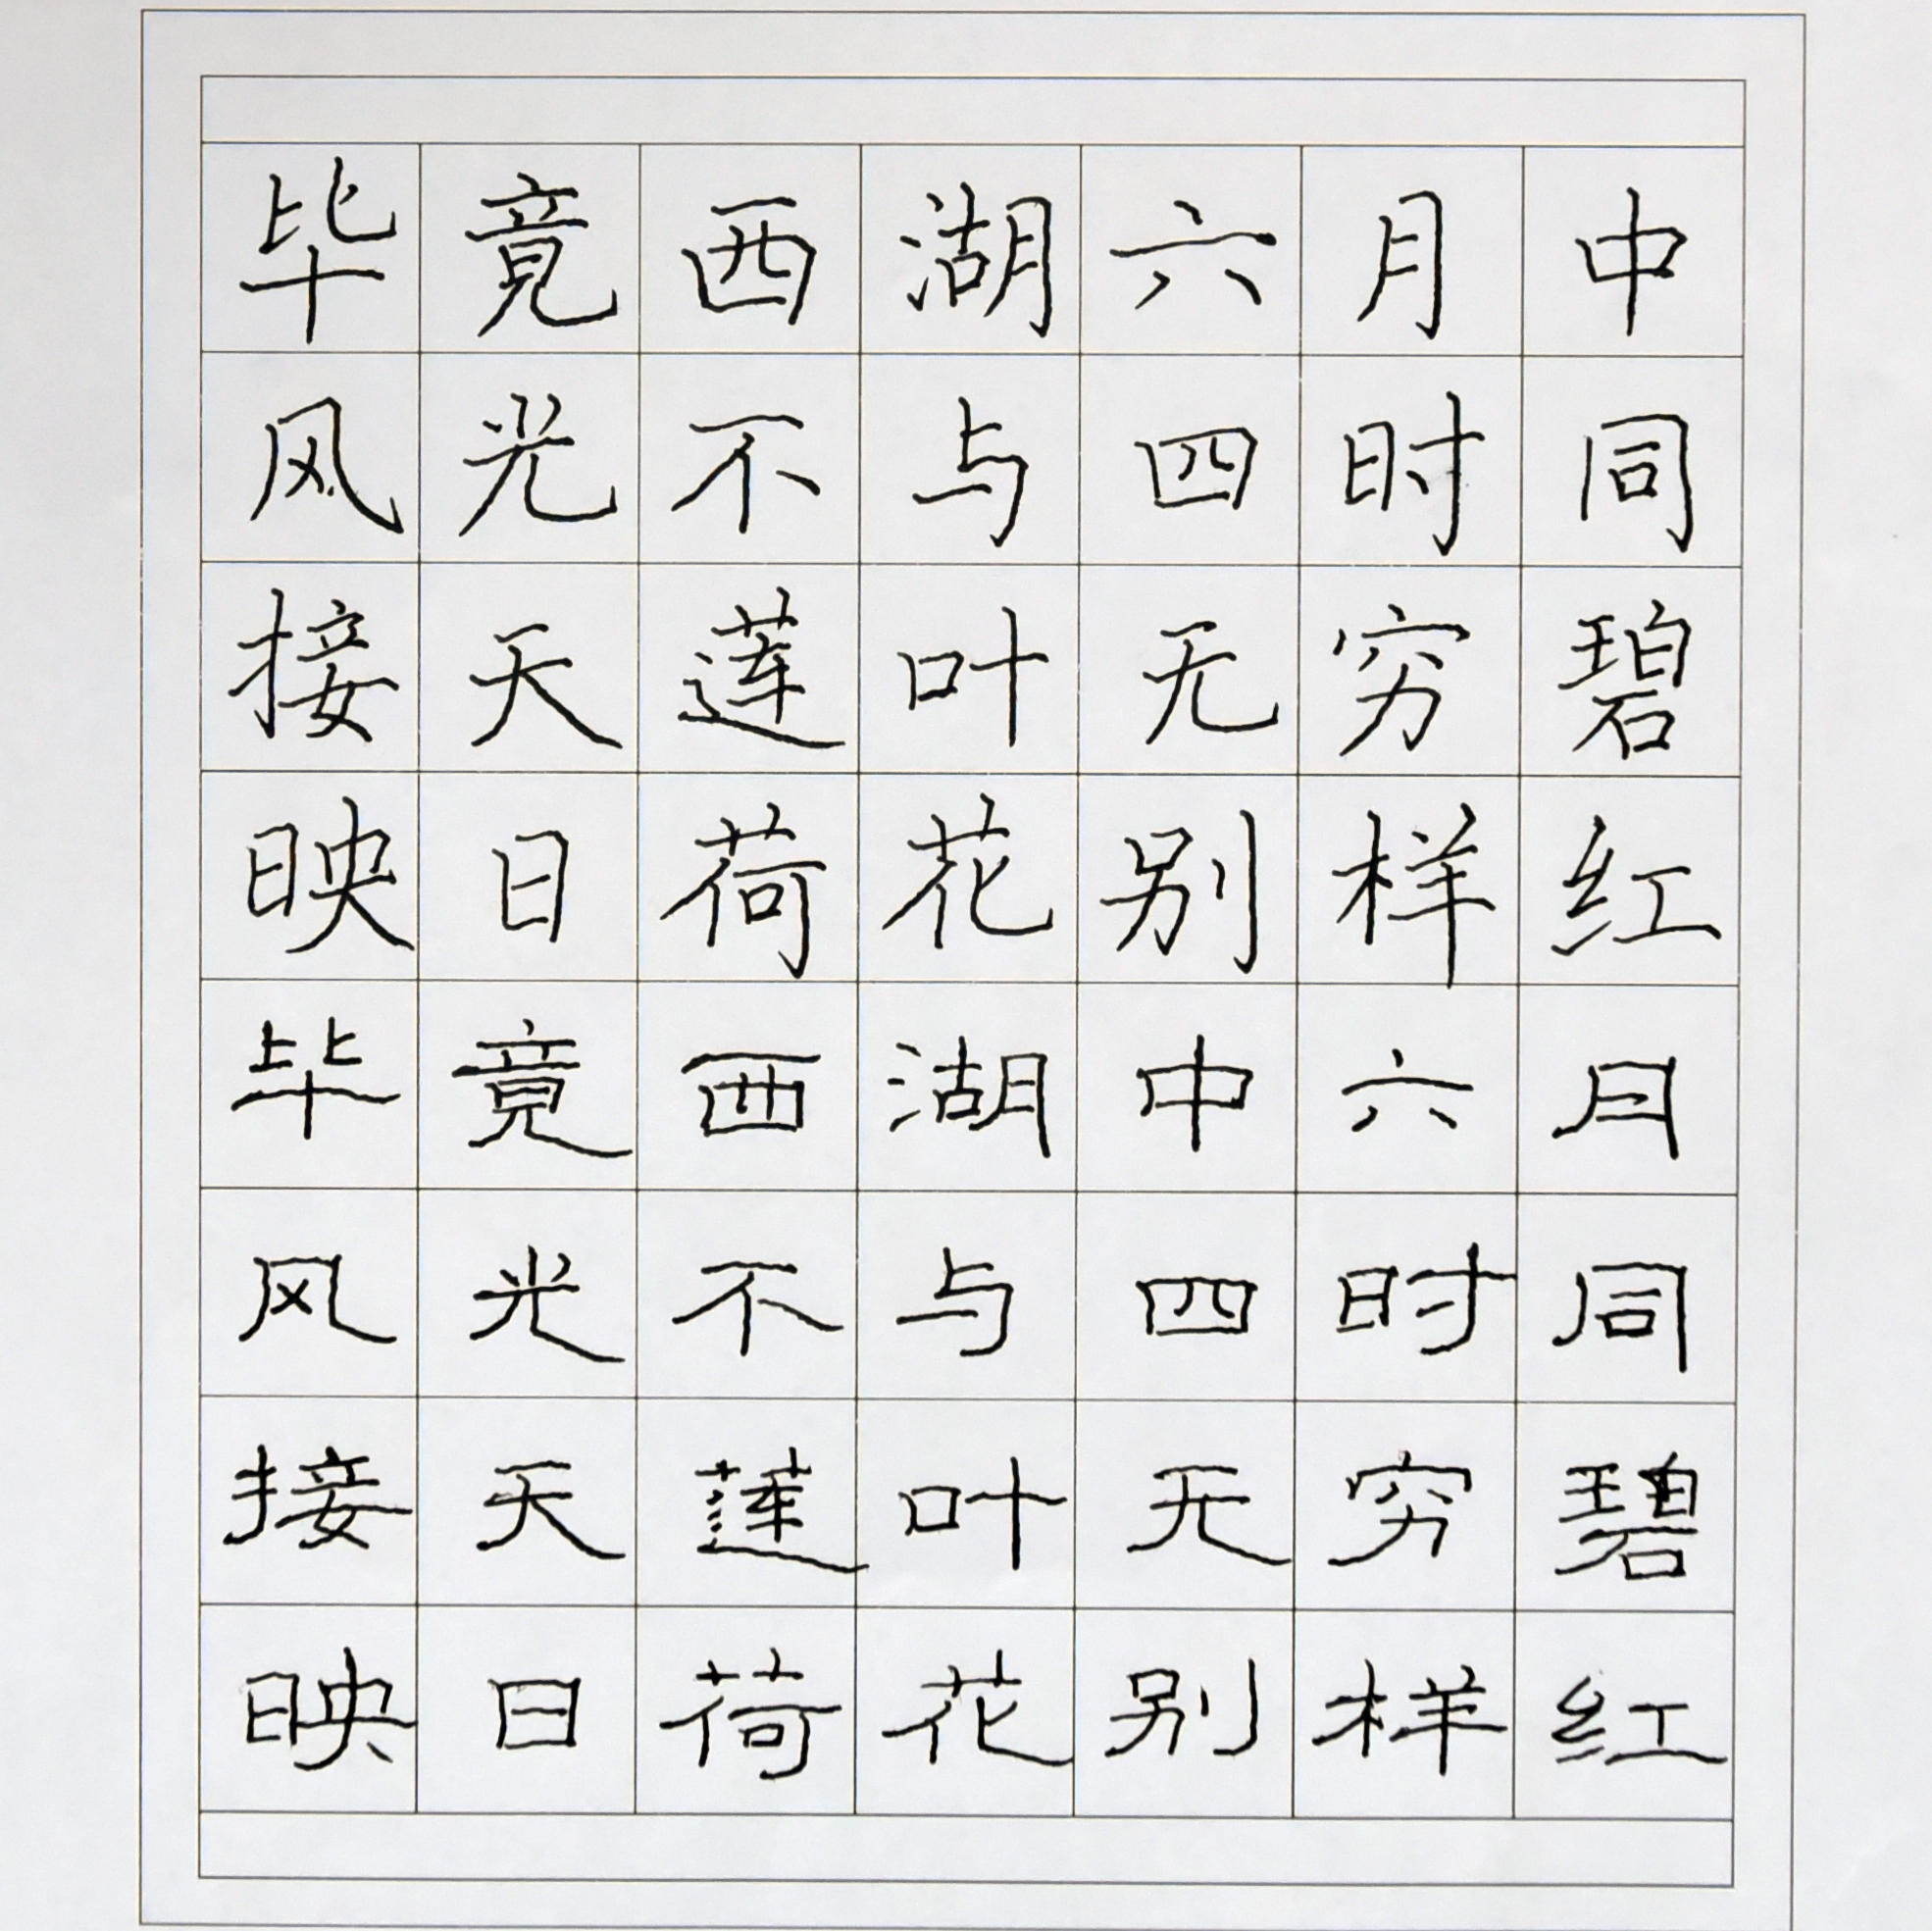 毕竟西湖六月中
风光不与四时同
接天莲叶无穷碧
映日荷花别样红
毕竟西湖中六月
风光不与四时同
接天莲叶无穷碧
映日荷花别样红